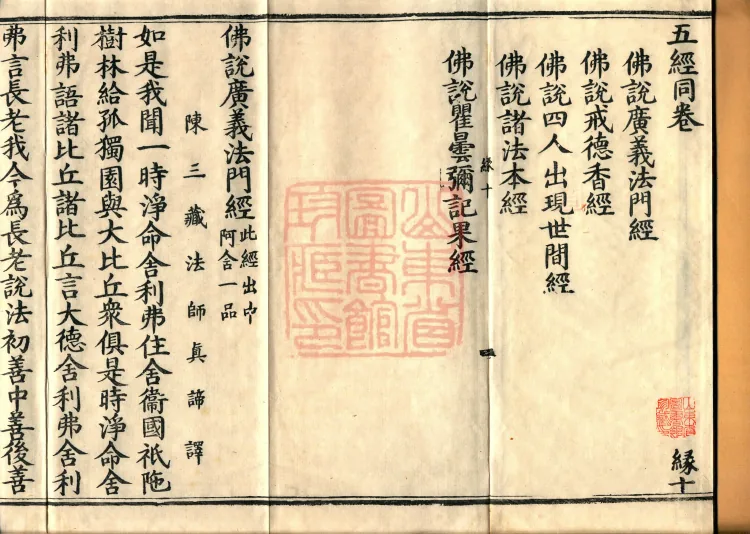 五經同卷
縁十
佛說廣義法門經
佛說戒德香經
佛說四人出現世間經
佛說諸法本經
縁十
佛說瞿曇彌記果經
山東省
圖書館
佛說廣義法門經此經出中
阿舍一品
陳三藏法師真諦譯
如是我聞一時淨命舍利弗住舍衞國祇陁
樹林給孤獨園與大比丘衆俱是時淨命舍
利弗語諸比丘諸比丘言大德舍利弗舍利
弗言長老我今爲長老說法初善中善後善